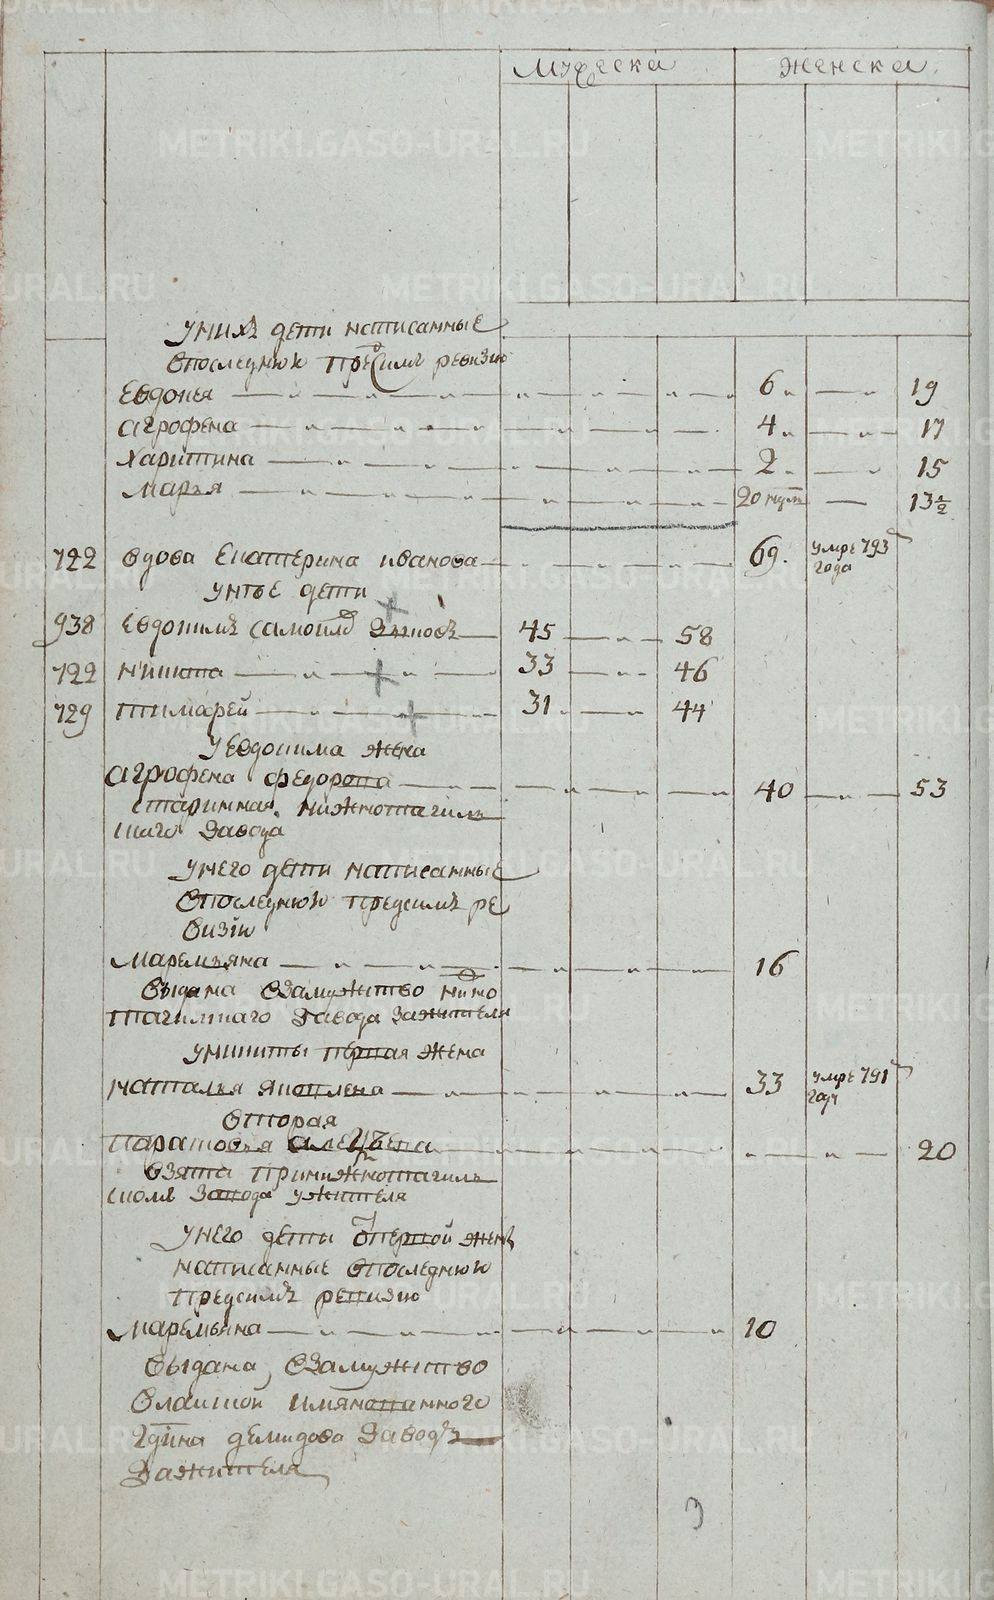 Мужеска Женска
у них дети написанные
впоследнюю предсимъ ревизию
Евдокея 6 19
агрофена 4 17
харитина 2 15
Марья 20 нед 13½
722 вдова Екатерина иванова 69. умре 793 года
у нѣе дети
938 Евдокимъ самойловъ 45 58
722 никита 33 46
729 тимофей 31 44
у Евдокима жена
агрофена федорова 40 53
старинная нижнотагиль
скаго завода
у него дети написанные
впоследнюю предсимъ ре
визiю
Маремьяна 16
выдана взамужство нижно
тагилскаго завода зажителя
у никиты первая жена
наталья яковлева 33 умре 791 году
вторая
парасковья алексѣева 20
взята принижнотагиль
скомъ заводе ужителя
у него дети от первой жены
написанные впоследнюю
предсимъ ревизию
Маремьяна 10
выдана взамужство
имянованного
Гдина демидова заводъ
зажителя